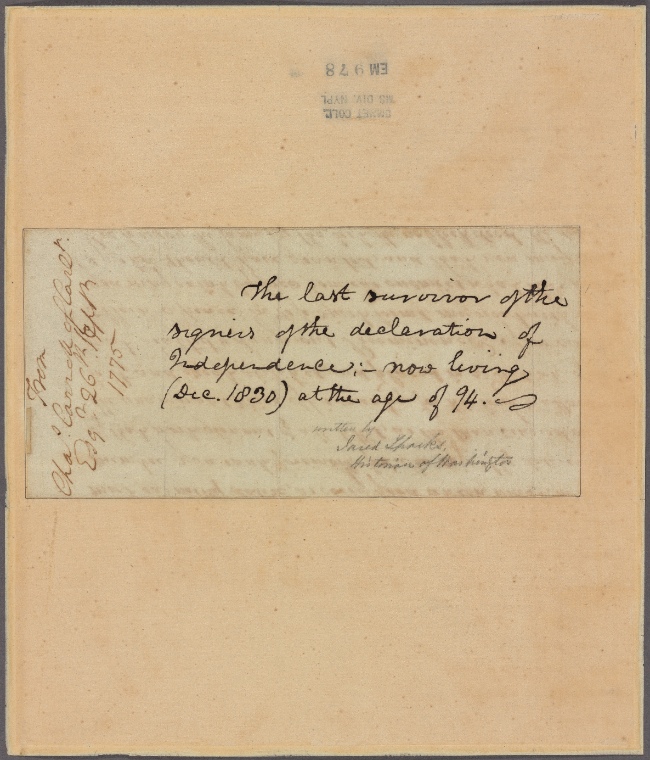 EM 978
MS. DIV. NYPL
EMMET COLL.
From
Chas. Carroll of Carrt.
Esqr. 26th Sept.
1775
The last survivor of the
signers of the declaration of
Independence;- now living
(Dec. 1830) at the age of 94.
written by
Jared Sparks,
Historian of Washington